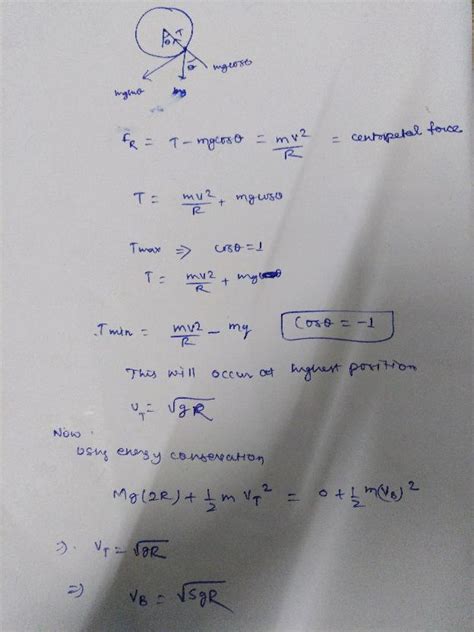 θ T
θ
mgcosθ
mg
F_R = T - mgcosθ = mv²/R = centripetal force
T = mv²/R + mgcosθ
Tmax ⇒ cosθ = 1
T = mv²/R + mg
Tmin = mv²/R - mg cosθ = -1
This will occur at highest position
V_T = √gR
Now
Using energy conservation
Mg(2R) + 1/2 m V_T² = 0 + 1/2 m(V_B)²
⇒ V_T = √gR
⇒ V_B = √5gR